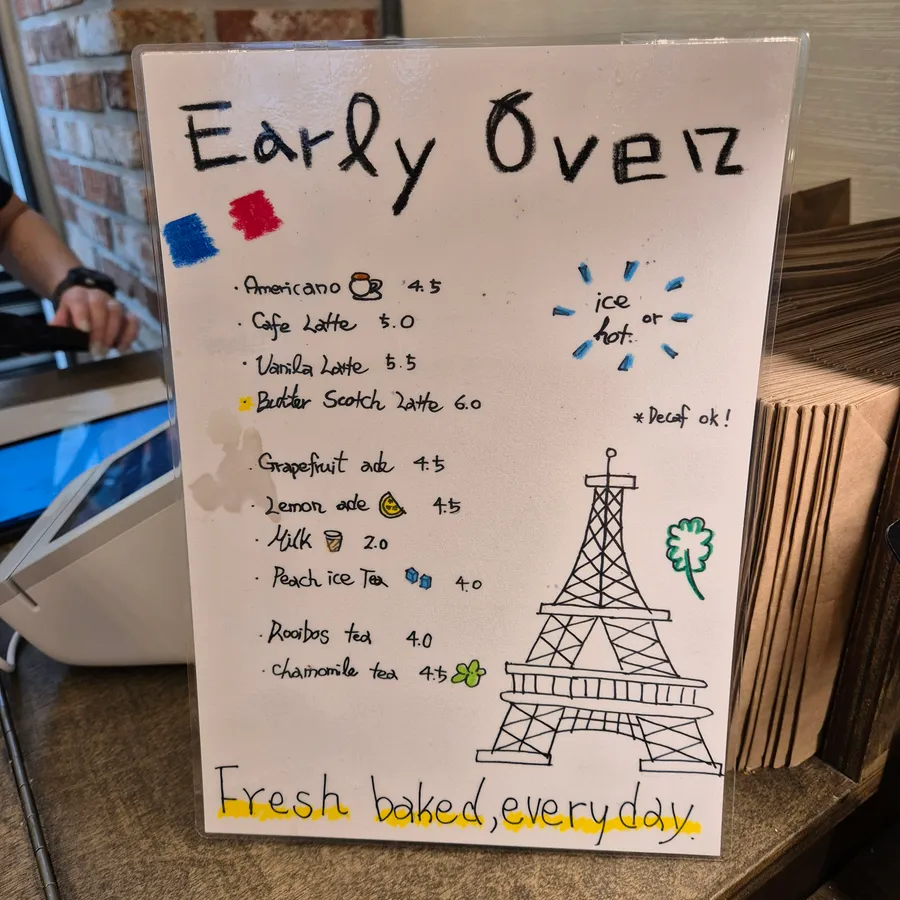 Early Oven
· Americano 4.5
· Cafe Latte 5.0
· Vanila Latte 5.5
Butter Scotch Latte 6.0
ice or
hot.
*Decaf ok!
· Grapefruit ade 4.5
· Lemon ade 4.5
· Milk 2.0
· Peach ice Tea 4.0
· Rooibos tea 4.0
· chamomile tea 4.5
Fresh baked, everyday.